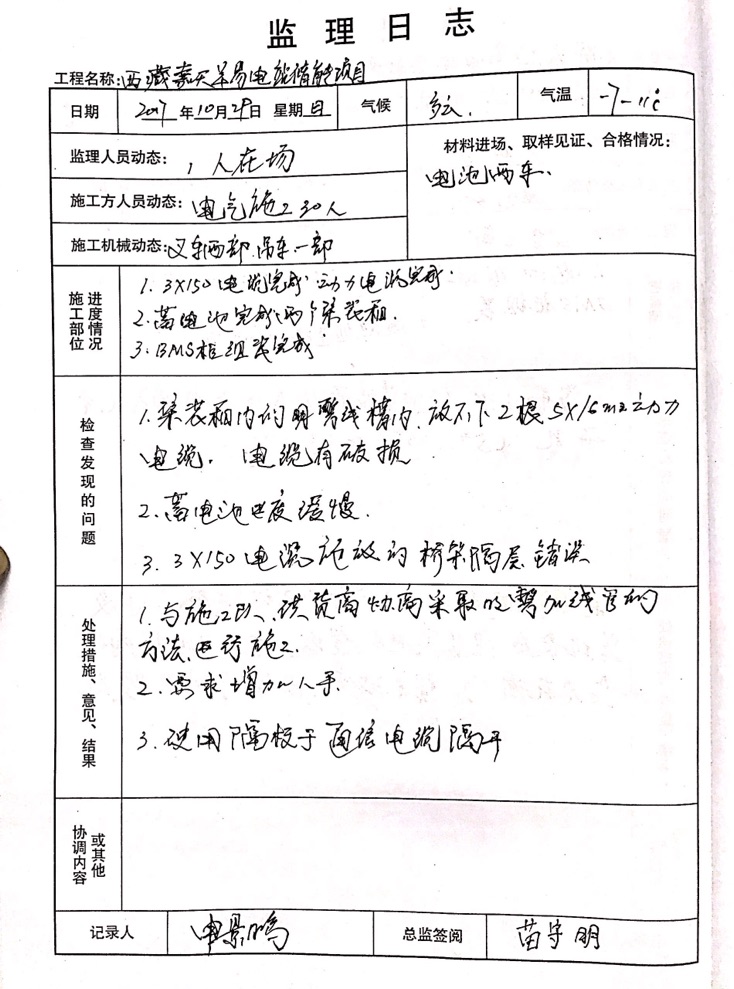 监理日志
工程名称:西藏嘉天羊易电站储能项目
日期 2017年10月29日 星期日 气候 多云. 气温 -7-11℃
监理人员动态: 1人在场
材料进场、取样见证、合格情况:
电池两车.
施工方人员动态: 电气施工30人
施工机械动态: 叉车两部.吊车一部
施工部位 进度情况
1. 3X150电缆完成 动力电缆完成
2. 蓄电池完成两个集装箱.
3. BMS柜组装完成
检查发现的问题
1. 集装箱内的明臂线槽内,放不下2根5X16m2动力
电缆. 电缆有破损
2. 蓄电池进度缓慢.
3. 3X150电缆施放的桥架隔层错误
处理措施、意见、结果
1. 与施工队、供货商协商采取 加线管的
方法进行施工.
2. 要求增加人手.
3. 使用隔板于通信电缆隔开
协调内容 或其他
记录人 申景鸣 总监签阅 苗守明